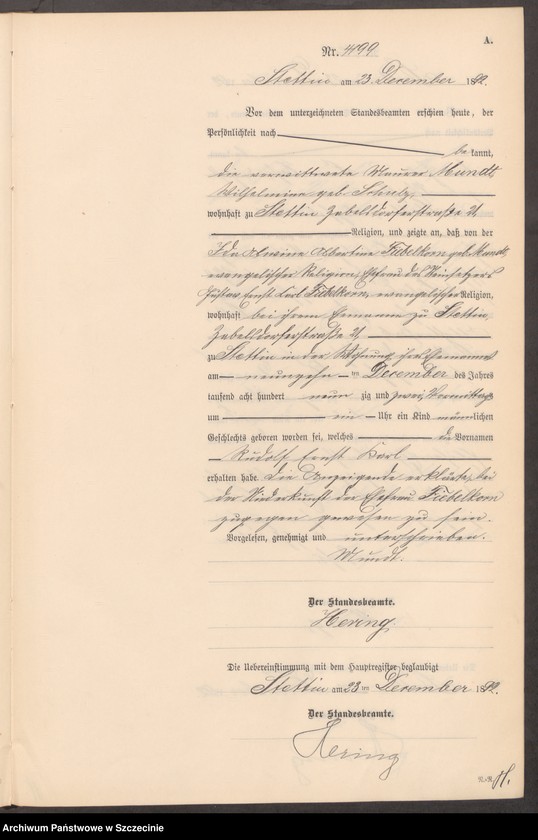 A.
Nr. 4199
Stettin am 23. December 1892.
Vor dem unterzeichneten Standesbeamten erschien heute, der
Persönlichkeit nach
bekannt,
die verwittwete Maurer Mundt,
Wilhelmine geb. Schulz,
wohnhaft zu Stettin Zabelsdorferstraße
Religion, und zeigte an, daß von der
Ida Alwine Albertine Fiebelkorn geb. Mundt,
evangelischer Religion, Ehefrau des
Gustav Ernst Carl Fiebelkorn, evangelischer Religion,
wohnhaft bei ihrem Ehemanne zu Stettin,
Zabelsdorferstraße
zu Stettin in der Wohnung ihres Ehemannes
am neunzehnten December des Jahres
tausend acht hundert neunzig und zwei, Vormittags
um ein Uhr ein Kind männlichen
Geschlechts geboren worden sei, welches die Vornamen
Rudolf Ernst Karl
erhalten habe. Die Anzeigende erklärte, bei
der Niederkunft der Ehefrau Fiebelkorn
zugegen gewesen zu sein.
Vorgelesen, genehmigt und unterschrieben.
Mundt.
Der Standesbeamte.
Hering
Die Uebereinstimmung mit dem Hauptregister beglaubigt
Stettin am 23 ten December 1892.
Der Standesbeamte.
Hering
Archiwum Państwowe w Szczecinie